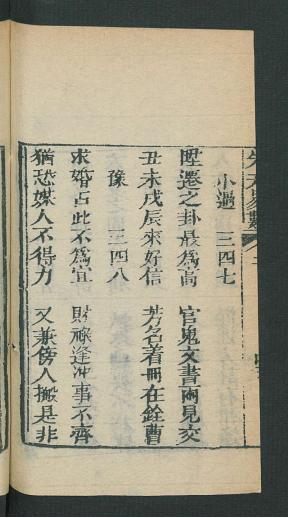 小過　三四七
陞遷之卦最爲高　官鬼文書兩見交
丑未戌辰來好信　芳名着冊在銓曹
豫　三四八
求婚占此不爲宜　財祿逢冲事不齊
猶恐媒人不得力　又兼傍人搬是非